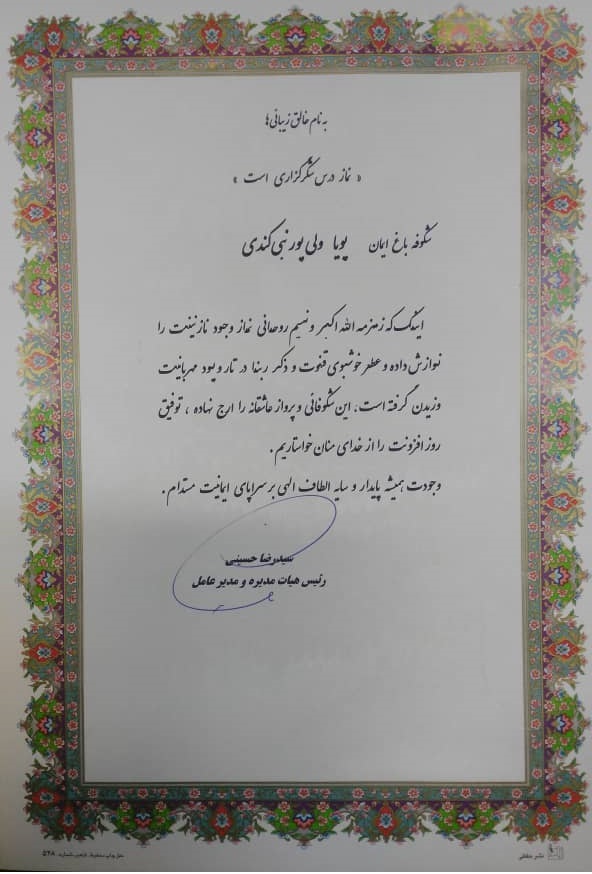 به نام خالق زیبائی‌ها
« نماز درس شکرگزاری است »
شکوفه باغ ایمان پویا ولی پور نبی کندی
اینک که زمزمه الله اکبر و نسیم روحانی نماز وجود نازنینت را
نوازش داده و عطر خوشبوی قنوت و ذکر ربنا در تار و پود مهربانیت
وزیدن گرفته است، این شکوفائی و پرواز عاشقانه را ارج نهاده ، توفیق
روز افزونت را از خدای منان خواستاریم.
وجودت همیشه پایدار و سایه الطاف الهی بر سراپای ایمانیت مستدام.
سیدرضا حسینی
رئیس هیات مدیره و مدیر عامل
حق چاپ محفوظ، شماره ۵۲۸
نشر حافظی